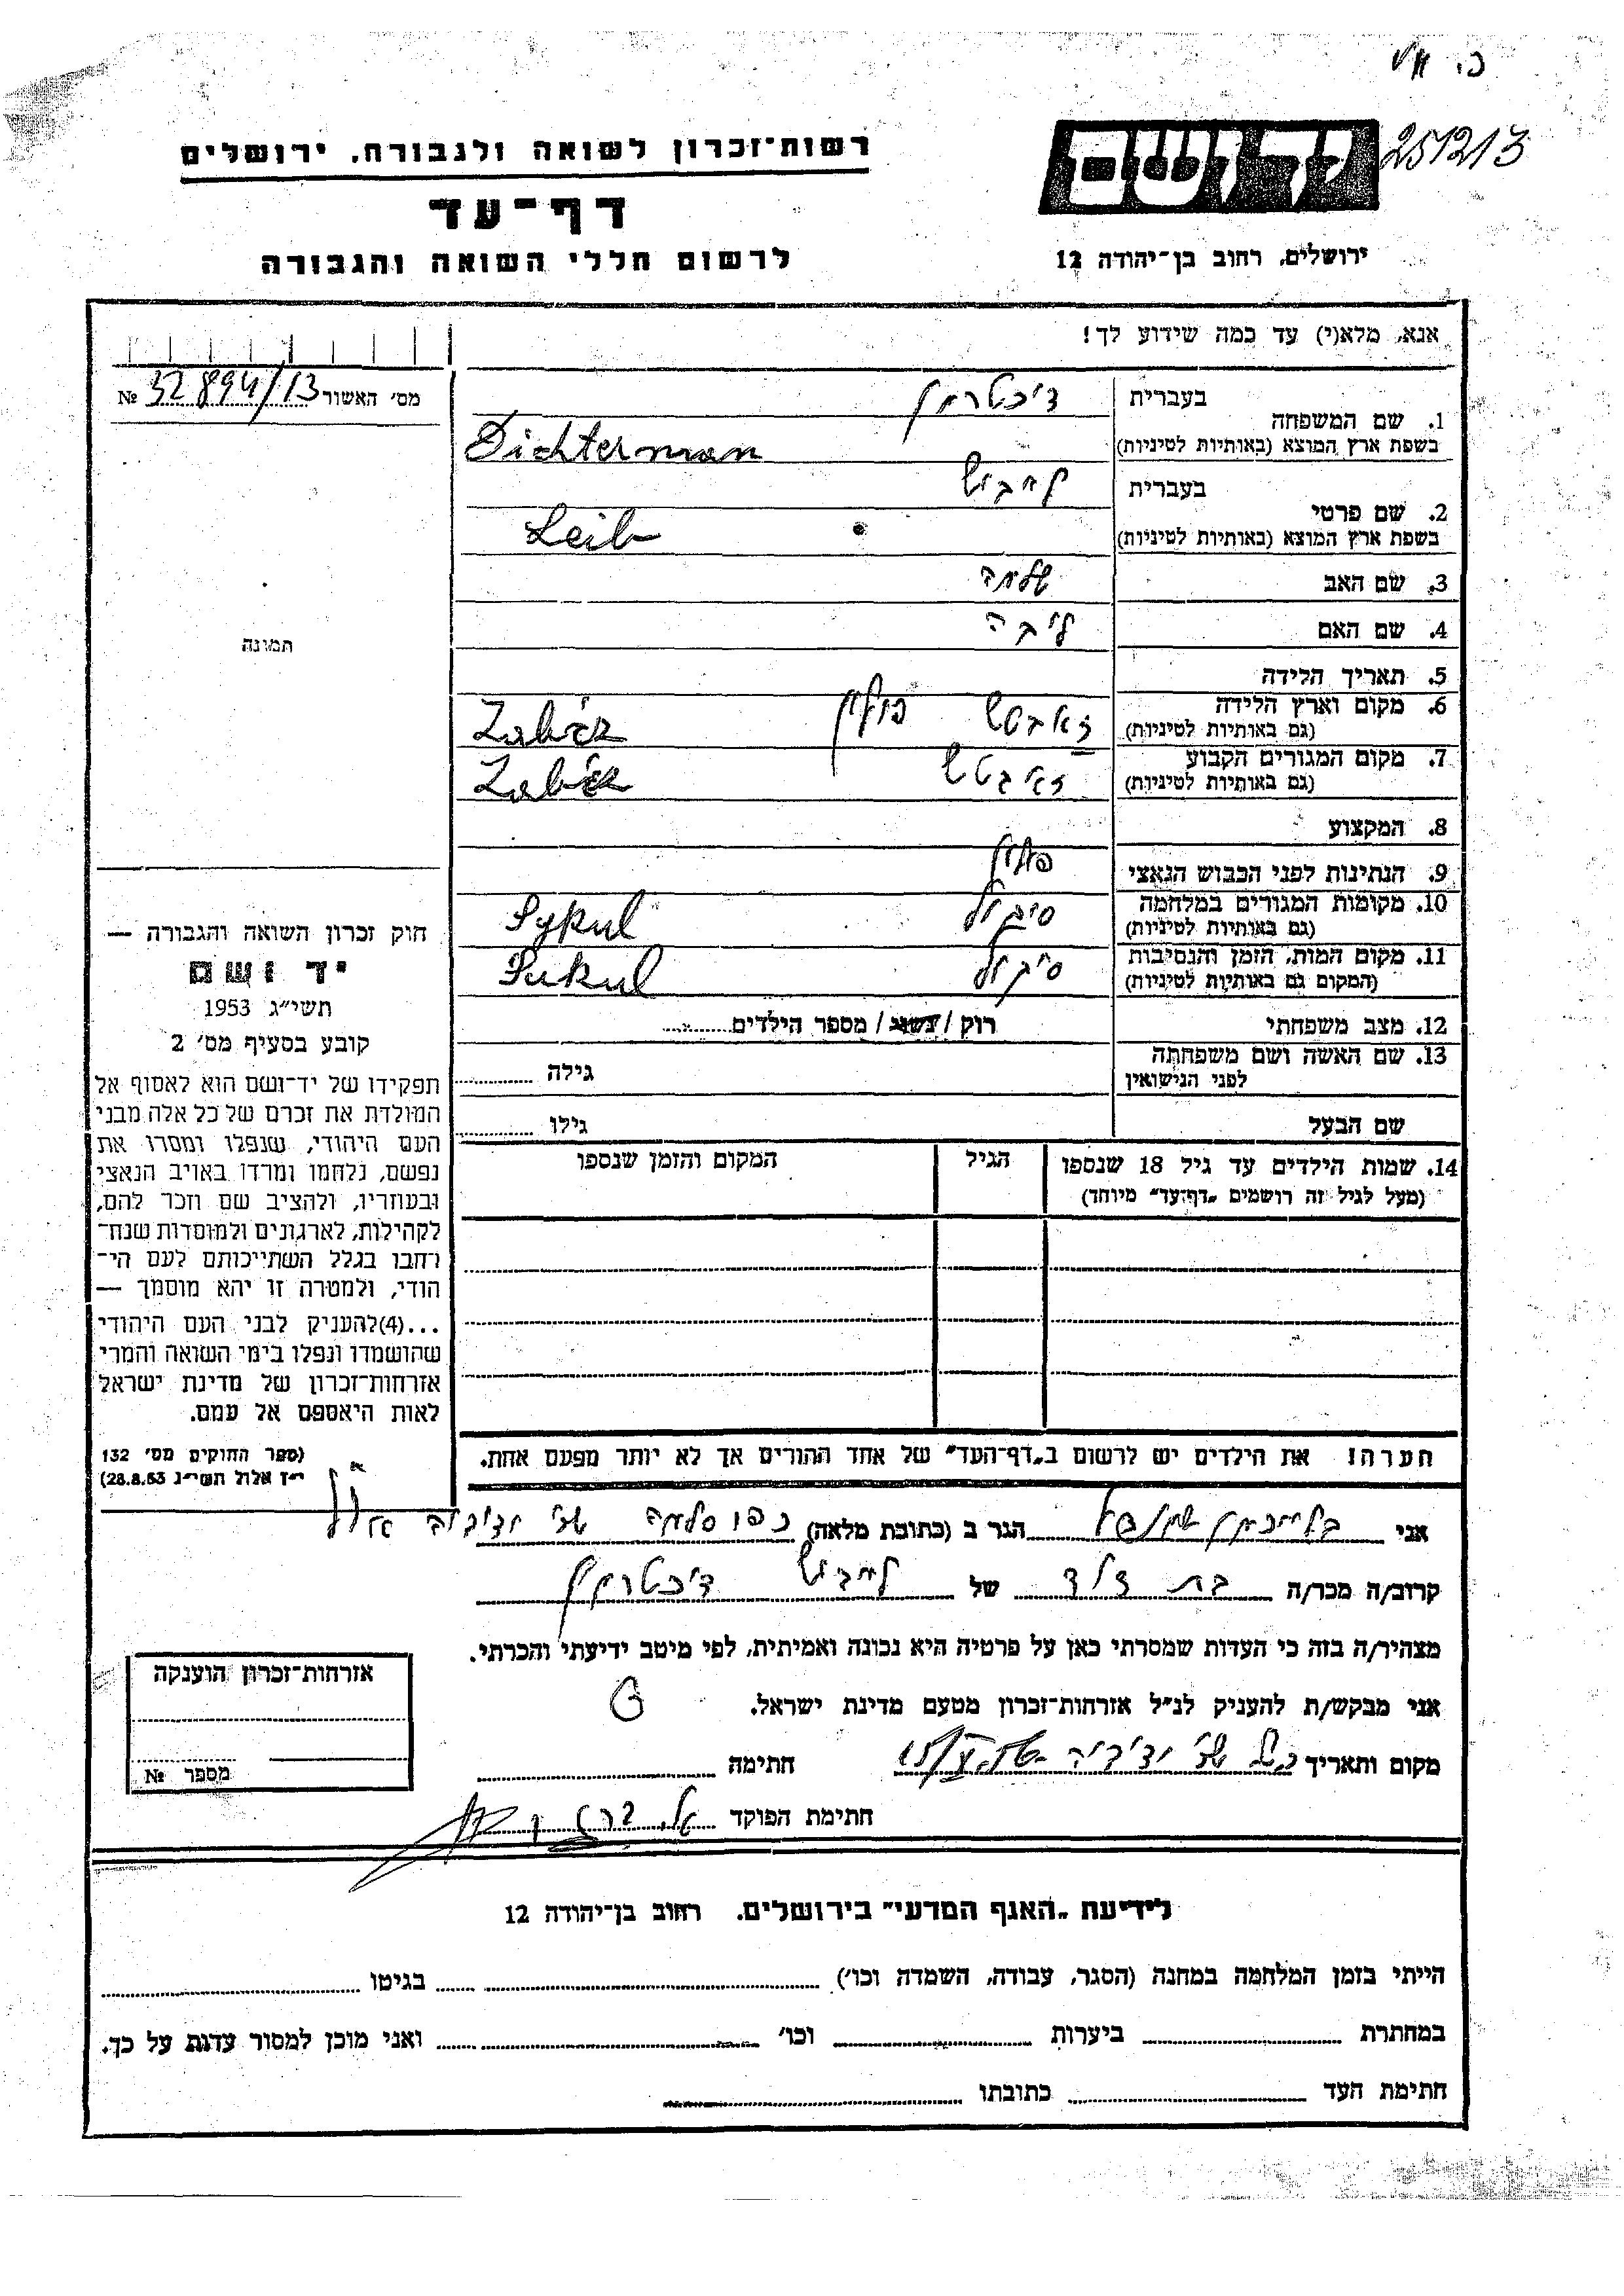 25121/3
רשות־זכרון לשואה ולגבורה. ירושלים
דף־עד
לרשום חללי השואה והגבורה
יד ושם
ירושלים, רחוב בן־יהודה 12
אנא, מלא(י) עד כמה שידוע לך!
מס׳ האשור 32894/13 №
1. שם המשפחה
בעברית דיכטרמן
בשפת ארץ המוצא (באותיות לטיניות) Dichterman
2. שם פרטי
בעברית לייבוש
בשפת ארץ המוצא (באותיות לטיניות) Leib
3. שם האב שלמה
4. שם האם ליבה
5. תאריך הלידה
6. מקום וארץ הלידה
(גם באותיות לטיניות) פולין
7. מקום המגורים הקבוע
(גם באותיות לטיניות)
8. המקצוע
9. הנתינות לפני הכבוש הנאצי פולין
10. מקומות המגורים במלחמה
(גם באותיות לטיניות) סיקול Sykul
11. מקום המות, הזמן והנסיבות
(המקום גם באותיות לטיניות) סיקול
12. מצב משפחתי רוק / נשוי / מספר הילדים
13. שם האשה ושם משפחתה
לפני הנישואין גילה
שם הבעל גילו
14. שמות הילדים עד גיל 18 שנספו הגיל המקום והזמן שנספו
(מעל לגיל זה רושמים "דף־עד" מיוחד)
תמונה
חוק זכרון השואה והגבורה —
יד ושם
תשי״ג 1953
קובע בסעיף מס׳ 2
תפקידו של יד־ושם הוא לאסוף אל
המולדת את זכרם של כל אלה מבני
העם היהודי, שנפלו ומסרו את
נפשם, נלחמו ומרדו באויב הנאצי
ובעוזריו, ולהציב שם וזכר להם,
לקהילות, לארגונים ולמוסדות שנח־
רבו בגלל השתייכותם לעם הי־
הודי, ולמטרה זו יהא מוסמך —
...(4)להעניק לבני העם היהודי
שהושמדו ונפלו בימי השואה והמרי
אזרחות־זכרון של מדינת ישראל
לאות היאספם אל עמם.
(ספר החוקים מס׳ 132
י״ז אלול תשי״ג 28.8.53)
הערה! את הילדים יש לרשום ב"דף־העד" של אחד ההורים אך לא יותר מפעם אחת.
אני הגר ב (כתובת מלאה)
קרוב/ה מכר/ה בת דוד של לייבוש דיכטרמן
מצהיר/ה בזה כי העדות שמסרתי כאן על פרטיה היא נכונה ואמיתית, לפי מיטב ידיעתי והכרתי.
אני מבקש/ת להעניק לנ״ל אזרחות־זכרון מטעם מדינת ישראל.
מקום ותאריך חתימה
חתימת הפוקד
אזרחות־זכרון הוענקה
מספר №
לידיעת "האגף המדעי" בירושלים. רחוב בן־יהודה 12
הייתי בזמן המלחמה במחנה (הסגר, עבודה, השמדה וכו׳) בגיטו
במחתרת ביערות וכו׳ ואני מוכן למסור עדות על כך.
חתימת העד כתובתו